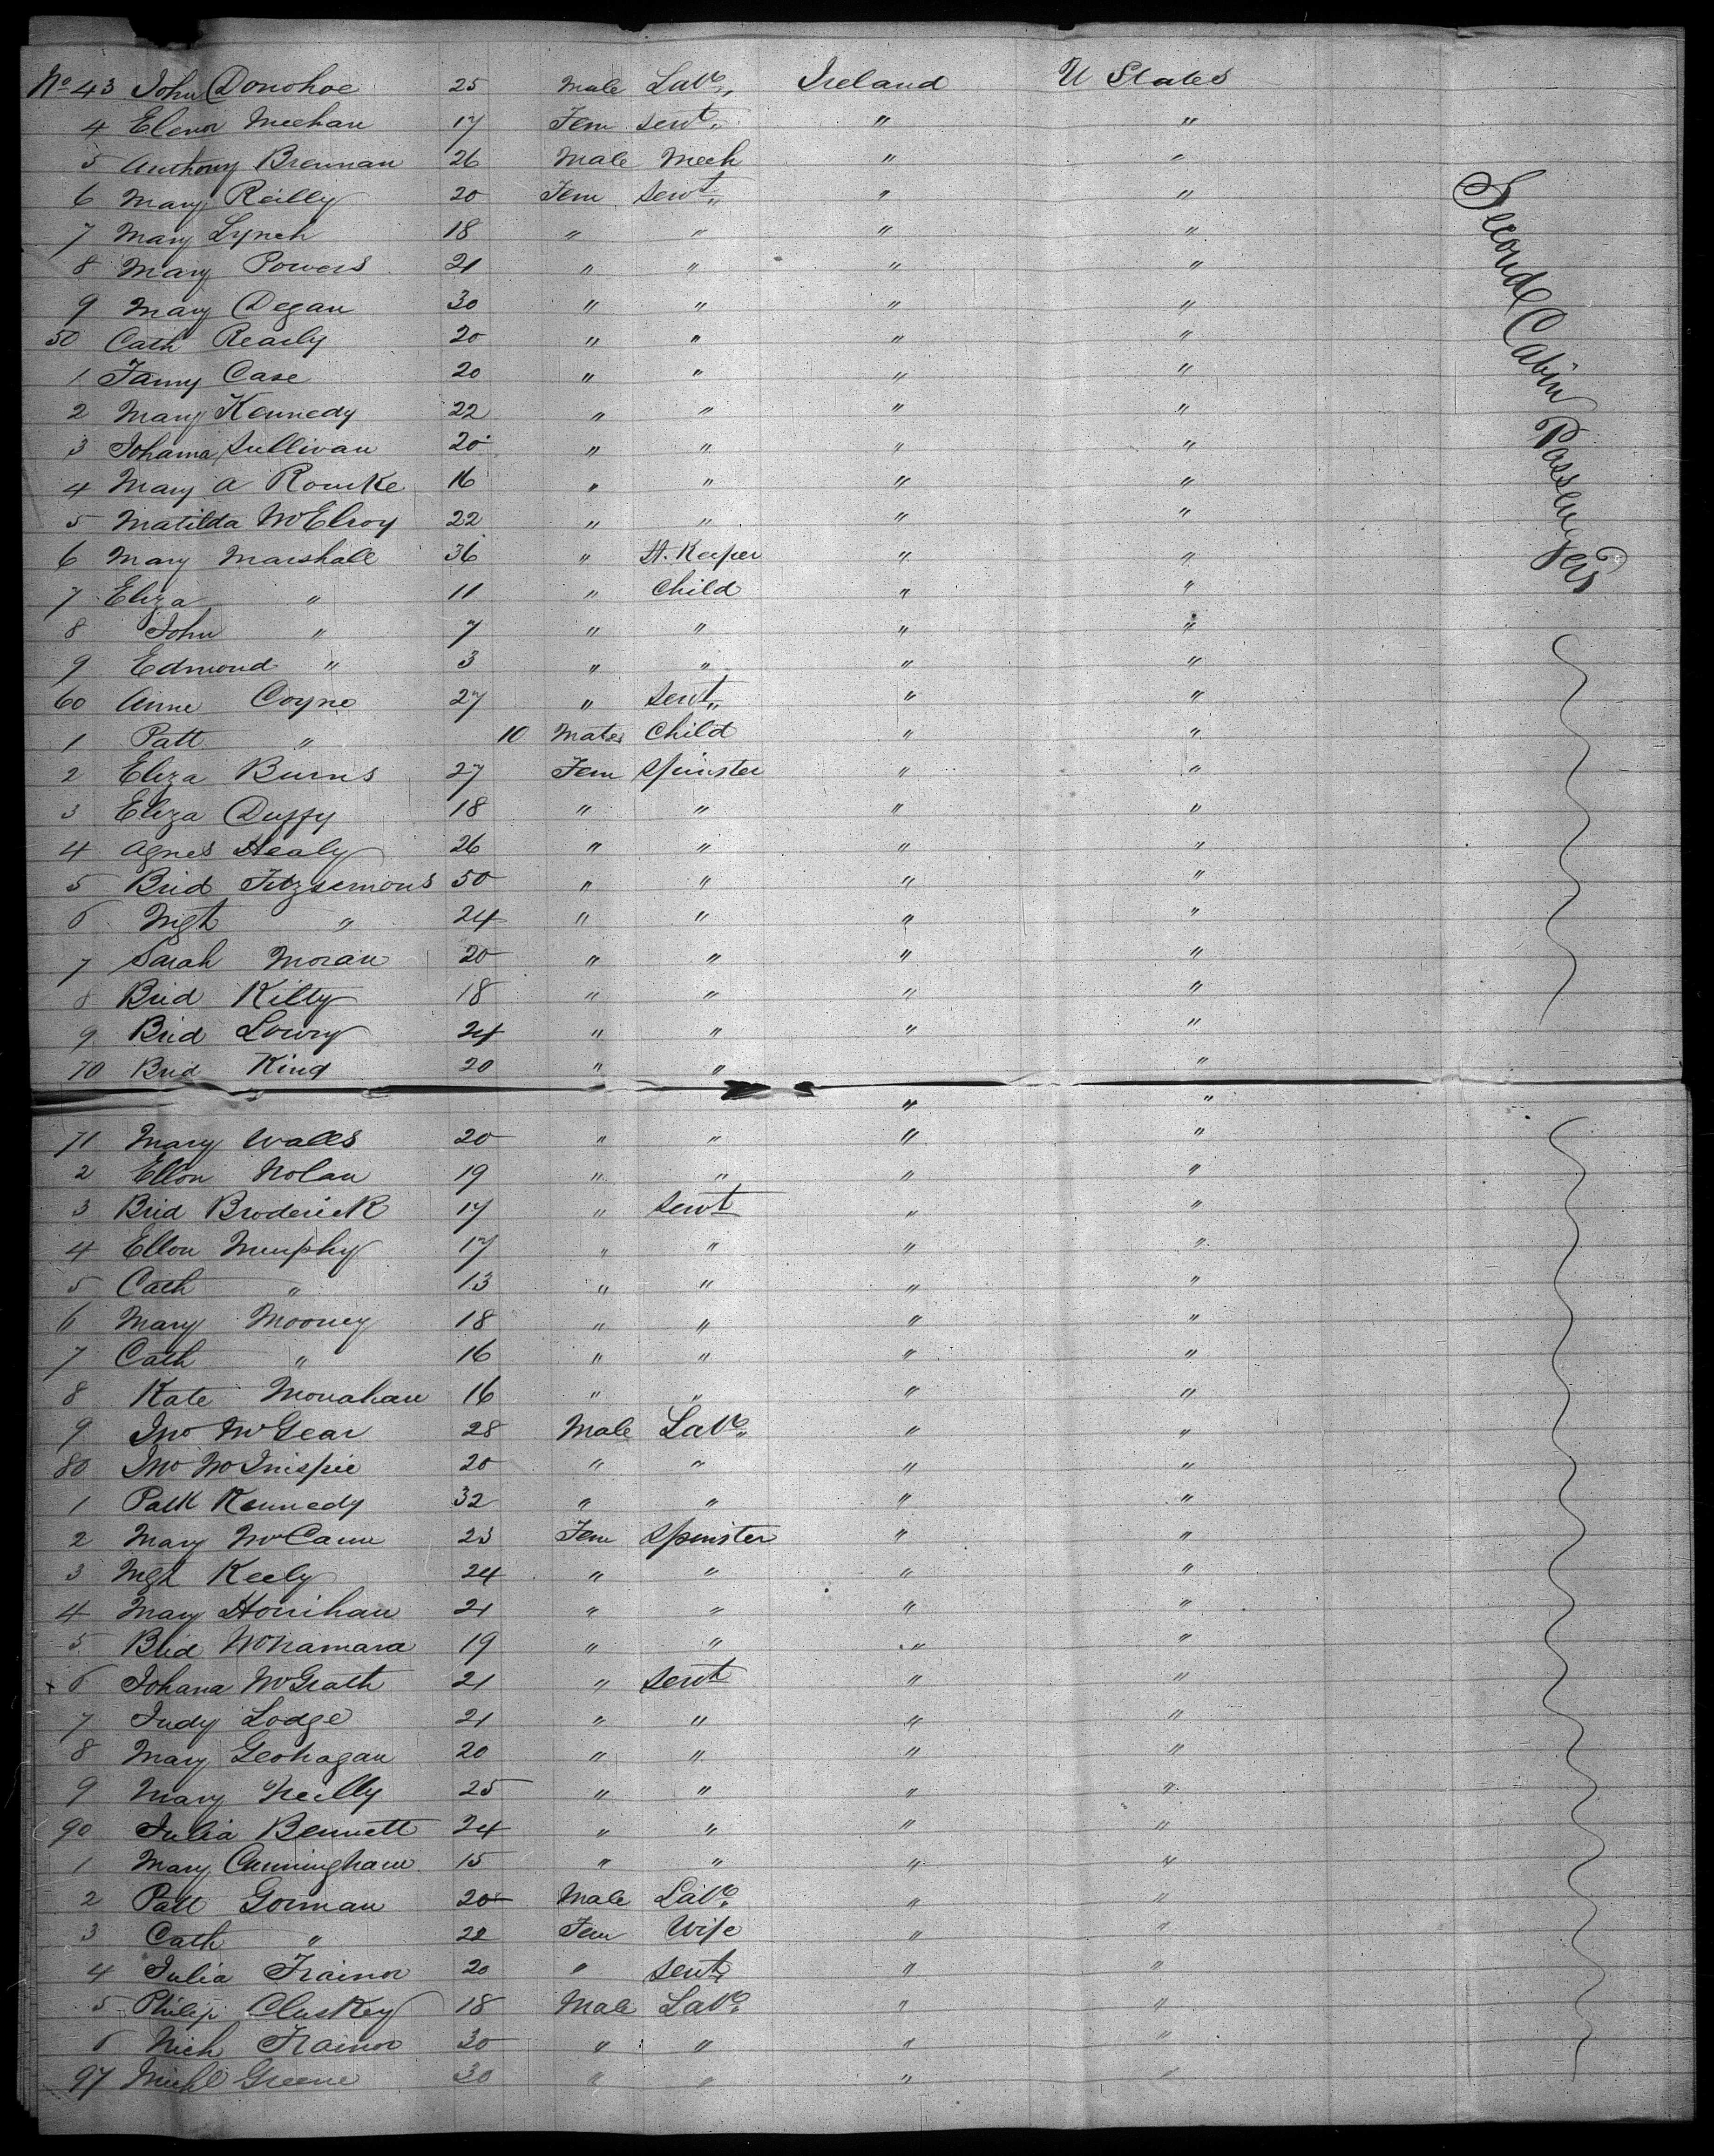 No 43 John Donohoe 25 Male Labr Ireland U States
4 Elenor Meehan 17 Fem Servt " "
5 Anthony Brennan 26 Male Mech " "
6 Mary Reilly 20 Fem Servt " "
7 Mary Lynch 18 " " " "
8 Mary Powers 21 " " " "
9 Mary Degan 30 " " " "
50 Cath Rearly 20 " " " "
1 Fanny Case 20 " " " "
2 Mary Kennedy 22 " " " "
3 Johanna Sullivan 20 " " " "
4 Mary A Rourke 16 " " " "
5 Matilda McElroy 22 " " " "
6 Mary Marshall 36 " H. Keeper " "
7 Eliza " 11 " Child " "
8 John " 7 " " " "
9 Edmond " 3 " " " "
60 Anne Coyne 27 " Servt " "
1 Patt " 10 Male Child " "
2 Eliza Burns 27 Fem Spinster " "
3 Eliza Duffy 18 " " " "
4 Agnes Healy 26 " " " "
5 Brid Fitzsemons 50 " " " "
6 Mgt " 24 " " " "
7 Sarah Moran 20 " " " "
8 Brid Kilty 18 " " " "
9 Brid Lowry 24 " " " "
70 Brid King 20 " " "
" "
71 Mary Walls 20 " " " "
2 Ellen Nolan 19 " " " "
3 Brid Broderick 17 " Servt " "
4 Ellen Murphy 17 " " " "
5 Cath " 13 " " " "
6 Mary Mooney 18 " " " "
7 Cath " 16 " " " "
8 Kate Monahan 16 " " " "
9 Jno McGear 28 Male Labr " "
80 Jno 20 " " " "
1 Patk Kennedy 32 " " " "
2 Mary McCann 23 Fem Spinster " "
3 Mgt Keely 24 " " " "
4 Mary Hourihan 21 " " " "
5 Brid McNamara 19 " " " "
x 6 Johana McGrath 21 " Servt " "
7 Judy Lodge 21 " " " "
8 Mary Geohagan 20 " " " "
9 Mary Neilly 25 " " " "
90 Julia Bennett 24 " " " "
1 Mary Cunningham 15 " " " "
2 Patt Gorman 20 Male Labr " "
3 Cath " 22 Fem Wife " "
4 Julia Trainor 20 " Servt " "
5 Philip Cluskey 18 Male Labr " "
6 Nich Trainor 30 " " " "
97 Michl Greene 30 " " " "
Second Cabin Passengers